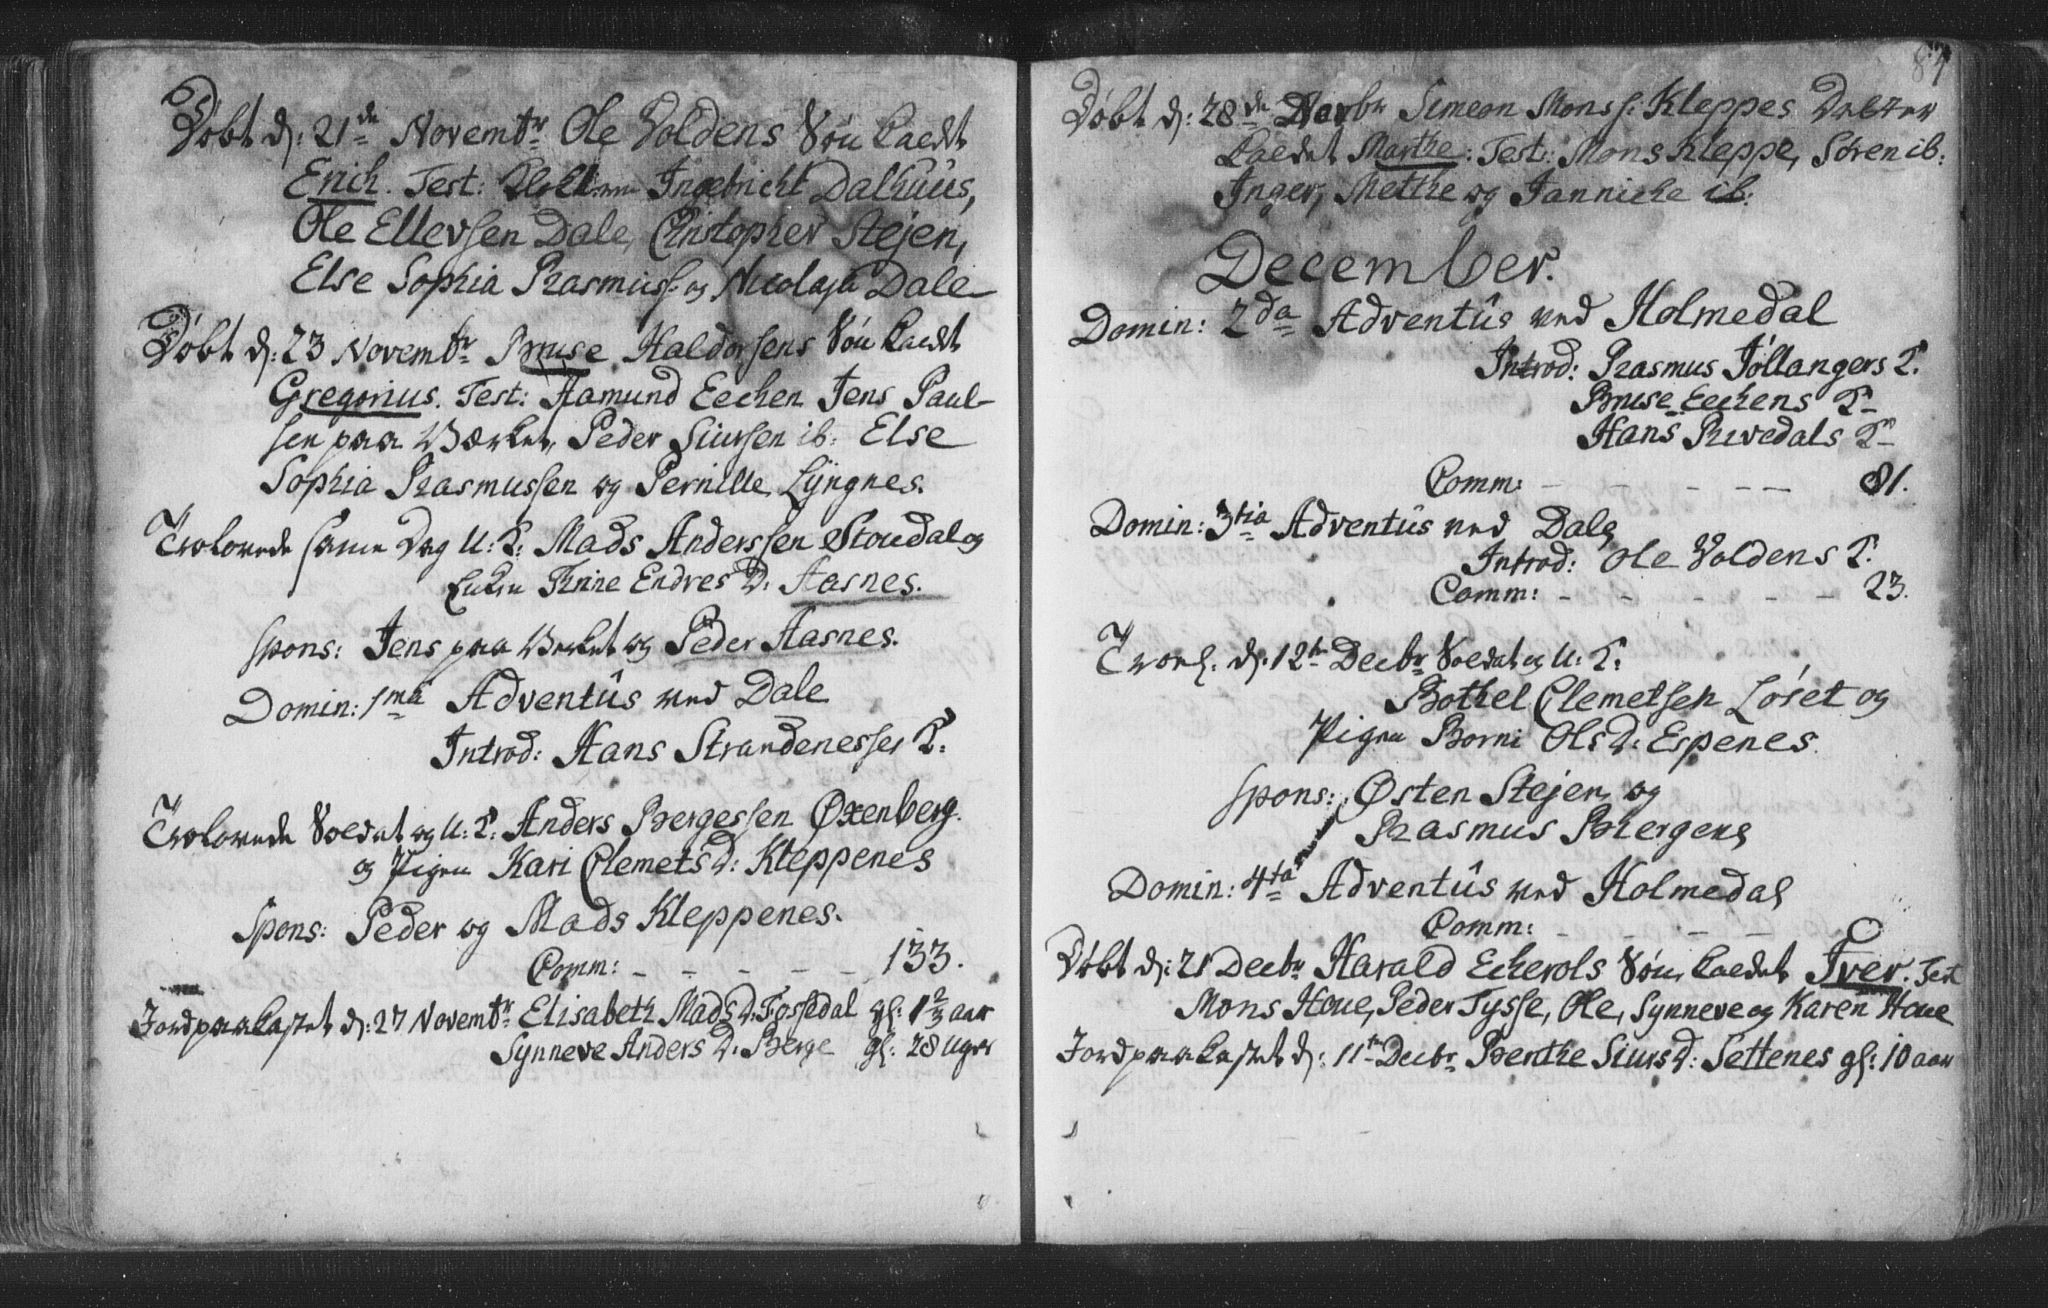 Døbt d: 21de Novembr Ole Voldens Søn kaedt
Erich. Test: Ingebricht Dalhuus,
Ole Ellevsen Dale, Christopher Stejen,
Else Sophia Rasmusf: og Nicolaja Dale
Døbt d: 23 Novembr Bruse Haldorsens Søn kaedt
Gregorius. Test: Aamund Eechen Jens Paul-
sen paa Værket, Peder Siursen ib: Else
Sophia Rasmussen og Pernille Lyngnes.
Trolovede samme Dag U: K: Mads Anderssen Stoudal og
Enken Trine Endres D: Aasnes.
spons: Jens paa Verket og Peder Aasnes.
Domin: 1ma Adventûs ved Dale
Introd: Hans Strandenesses K:
Trolovede Soldat og U: K: Anders Bergessen Oxenberg.
og Pigen Kari Clemets D: Kleppenes
Spons: Peder og Mads Kleppenes.
Comm: - - - - - 133.
Jordpaakastet d: 27 Novembr Elisabeth Mads D: Fossedal gl: 1 2/3 aar
Synneve Anders D: Berge gl: 28 Uger
87
Døbt d: 28de Novbr Simeon Monsf: Kleppes Datter
kaedet Marthe: Test: Mons Kleppe, Søren ib:
Inger, Mette og Jannicke ib:
December.
Domin: 2da Adventûs ved Holmedal
Introd: Rasmus Jøllangers K.
Bruse Eechens K
Hans Rivedals K
Comm: - - - - - 81.
Domin: 3tia Adventûs ved Dale
Introd: Ole Voldens K.
Comm: - - - - - 23.
Troel. d. 12te Decbr Soldat og U: K:
Bothel Clemetsen Løset og
Pigen Borni Ols D: Espenes.
spons: Østen Stejen og
Rasmus Bergene
Domin: 4ta Adventûs ved Holmedal
Comm: - - - -
Døbt d: 21 Decbr Harald Echerols Søn, kaedet Iver. Test
Mons Hove, Peder Tysse, Ole, Synneve og Karen Hove
Jordpaakastet d: 11te Decbr Berthe Siurs D: Settenes gl: 10 aar